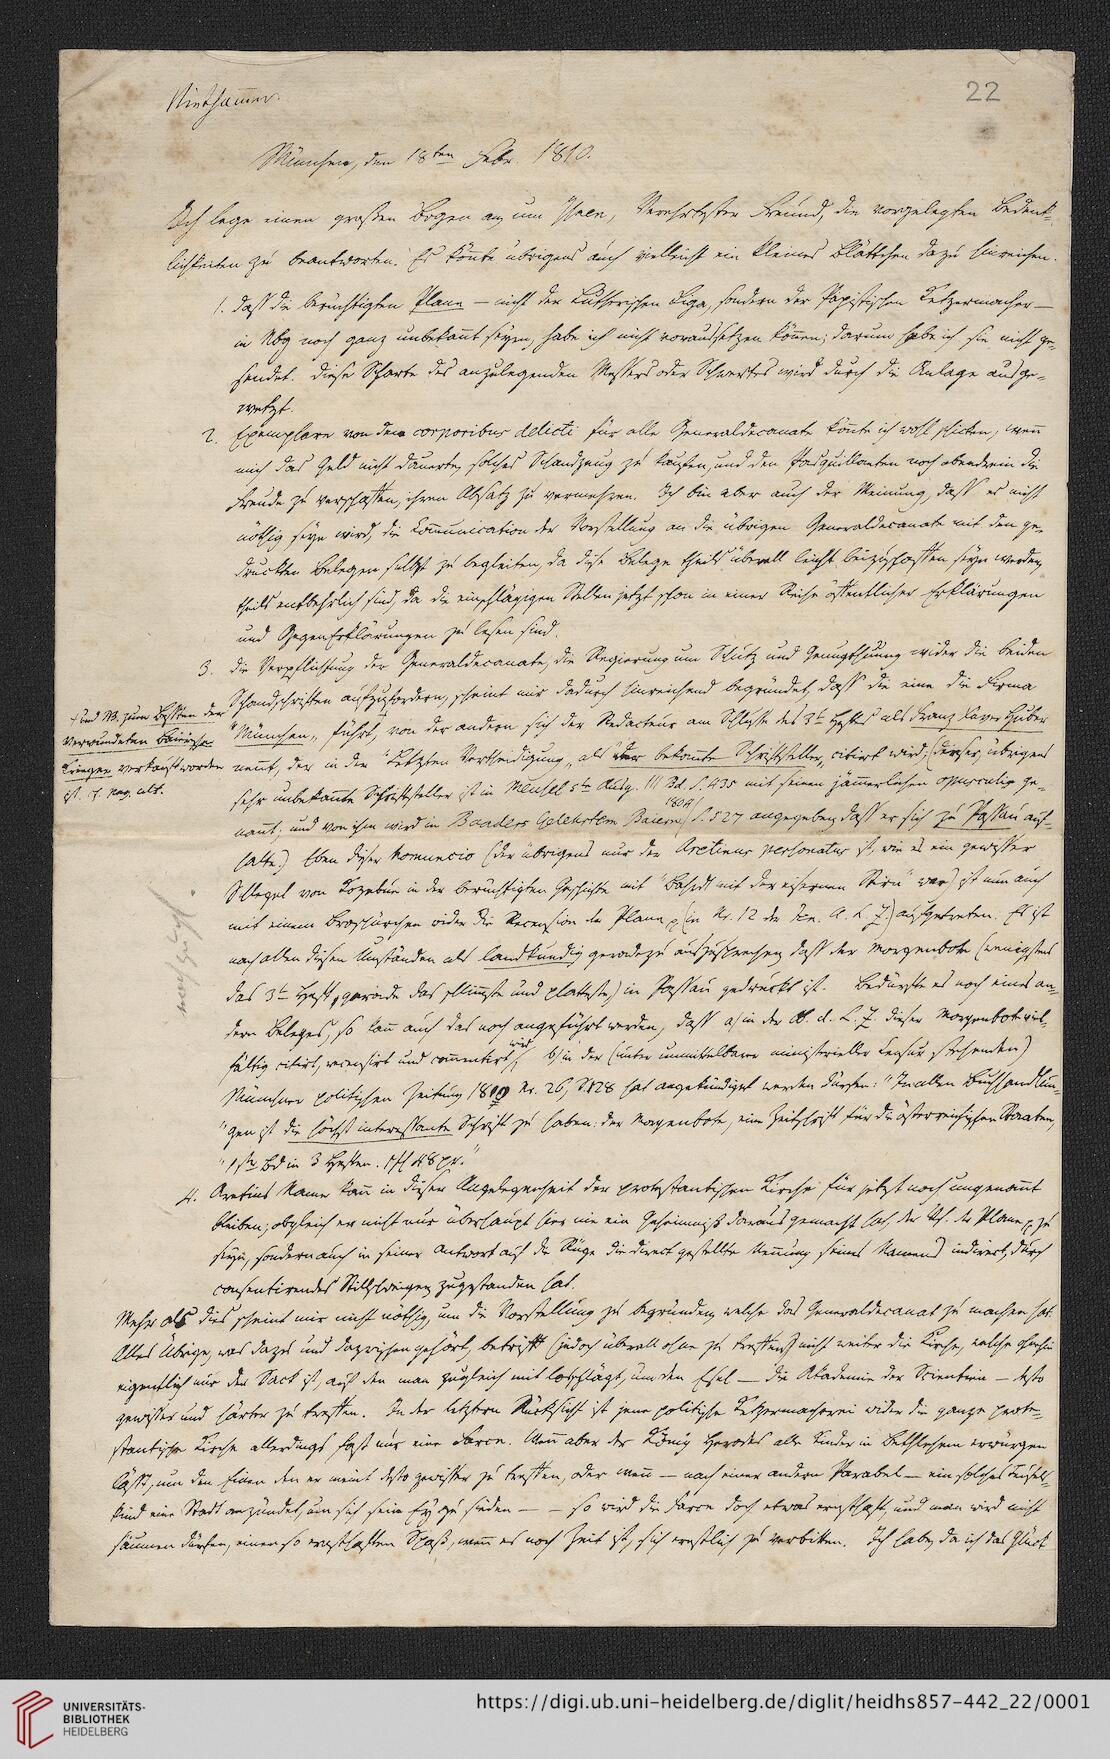 Niethammer.
22
München, den 18ten Febr. 1810.
Ich lege einen großen Bogen an, um Ihnen, Verehrtester Freund, die vorgelegten Bedenk-
lichkeiten zu beantworten. Es könnte übrigens auch vielleicht ein kleines Blättchen dazu hinreichen.
1. daß die berüchtigten Plane — nicht der Lutherischen Liga, sondern der Papistischen Ketzermacher —
in Nbg noch ganz unbekannt seyen, habe ich nicht voraussetzen können; darum habe ich sie nicht ge-
sendet. Diese Scharte des anzulegenden Messers oder Schwertes wird durch die Anlage ausge-
wetzt.
2. Exemplare von den corporibus delicti für alle Generaldecanate könnte ich wohl schicken, wenn
mich das Geld nicht dauerte, solches Schandzeug zu kaufen, und den Pasquillanten noch obendrein die
Freude zu verschaffen, ihren Absatz zu vermehren. Ich bin aber auch der Meinung, daß es nicht
nöthig seyn wird, die Communication der Vorstellung an die übrigen Generaldecanate mit den ge-
druckten Belegen selbst zu begleiten, da diese Belege theils überall leicht beizuschaffen seyn werden,
theils entbehrlich sind, da die einschlägigen Stellen jetzt schon in einer Reihe öffentlicher Erklärungen
und GegenErklärungen zu lesen sind.
3. die Verpflichtung der Generaldecanate, die Regierung um Schutz und Genugthuung wider die beiden
Schandschriften aufzufordern, scheint mir dadurch hinreichend begründet, daß die eine die Firma
"München" führt, von der andern sich der Redacteur am Schlusse des 3t Heftes als Franz Xaver Huber
nennt, der in der "Letzten Vertheidigung" als bekannte Schriftsteller citirt wird, (dieser übrigens
sehr unbekannte Schriftsteller ist in Meusel 5te Ausg. III Bd. S. 435 mit seinen jämmerlichen opusculis ge-
nannt, und von ihm wird in Baaders Gelehrtem Baiern (1804) S. 527 angegeben, daß er sich zu Passau auf-
halte.) Eben dieser homuncio (der übrigens nur der Aretinus personatus ist, wie es ein gewisser
Schlegel von Kozebue in der berüchtigten Geschichte mit "Bahrdt mit der eisernen Stirn" war) ist nun auch
mit einem Broschürchen wider die Recension der Plane p (in Nr. 12 der Jen. A. L. Z.) aufgetreten. Es ist
nach allen diesen Umständen als landkundig geradezu auszusprechen, daß der Morgenbote (wenigstens
das 3t Heft, gerade das schlimmste und platteste) in Passau gedruckt ist. Bedürfte es noch eines an-
dern Beleges, so kann auch das noch angeführt werden, daß a) in der O. d. L. Z. dieser Morgenbote viel-
fältig citirt, recensirt und commentirt wird, b) in der (unter unmittelbarer ministerieller Censur stehenden)
Münchner politischen Zeitung 1810 Nr. 26, S. 128 hat angekündigt werden dürfen: "In allen Buchhandlun-
"gen ist die höchst interessante Schrift zu haben: der Morgenbote, eine Zeitschrift für die österreichischen Staaten,
"1ster Bd in 3 Heften. 1 fl 48 xr."
und NB. zum Besten der
verwundeten bairischen
Krieger verkauft worden
ist.
4. Aretins Name kann in dieser Angelegenheit der protestantischen Kirche für jetzt noch ungenannt
bleiben; obgleich er nicht nur überhaupt hier nie ein Geheimniß daraus gemacht hat, der Vf. der Plane p zu
seyn, sondern auch in seiner Antwort auf die Rüge die direct gestellte Nennung seines Namens indirect, durch
consentirendes Stillschweigen, zugestanden hat.
Mehr als dies scheint mir nicht nöthig, um die Vorstellung zu begründen, welche das Generaldecanat zu machen hat.
Alles Übrige, was dazu und dazwischen gehört, betrifft (jedoch überall ohne zu treffen) nicht weiter die Kirche, welche hierin
eigentlich nur der Sack ist, auf den man zugleich mit losschlägt, um den Esel — die Akademie der Scientien — desto
gewisser und härter zu treffen. In der letztern Rücksicht ist jene politische Ketzermacherei wider die ganze prote-
stantische Kirche allerdings fast nur eine Farce. Wenn aber der König Herodes alle Kinder in Bethlehem erwürgen
läßt, um den Einen den er meint desto gewisser zu treffen, oder wenn — nach einer andern Parabel — ein solches Teufels-
kind eine Stadt anzündet, um sich sein Ey zu sieden — — so wird die Farce doch etwas ernsthaft, und man wird nicht
säumen dürfen, einen so ernsthaften Spaß, wenn es noch Zeit ist, sich ernstlich zu verbitten. Ich habe, da ich das Glück
UNIVERSITÄTS-
BIBLIOTHEK
HEIDELBERG
https://digi.ub.uni-heidelberg.de/diglit/heidhs857-442_22/0001